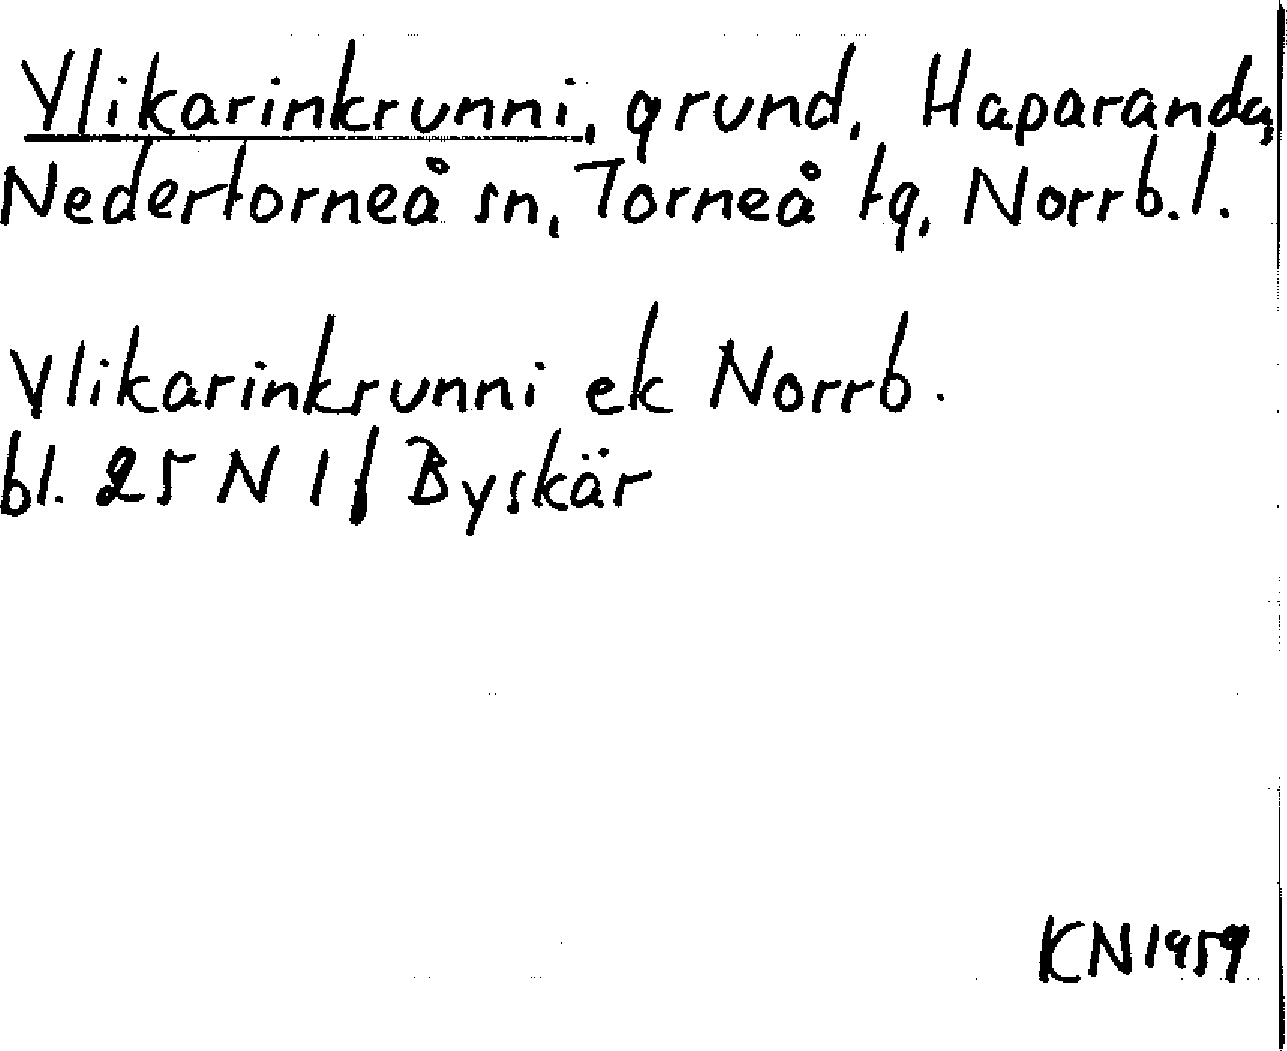 Ylikarinkrunni, grund, Haparanda,
Nedertorneå sn, Torneå tg, Norrb. l.
Ylikarinkrunni ek Norrb.
bl. 25 N 1 f Byskär
KN 1959